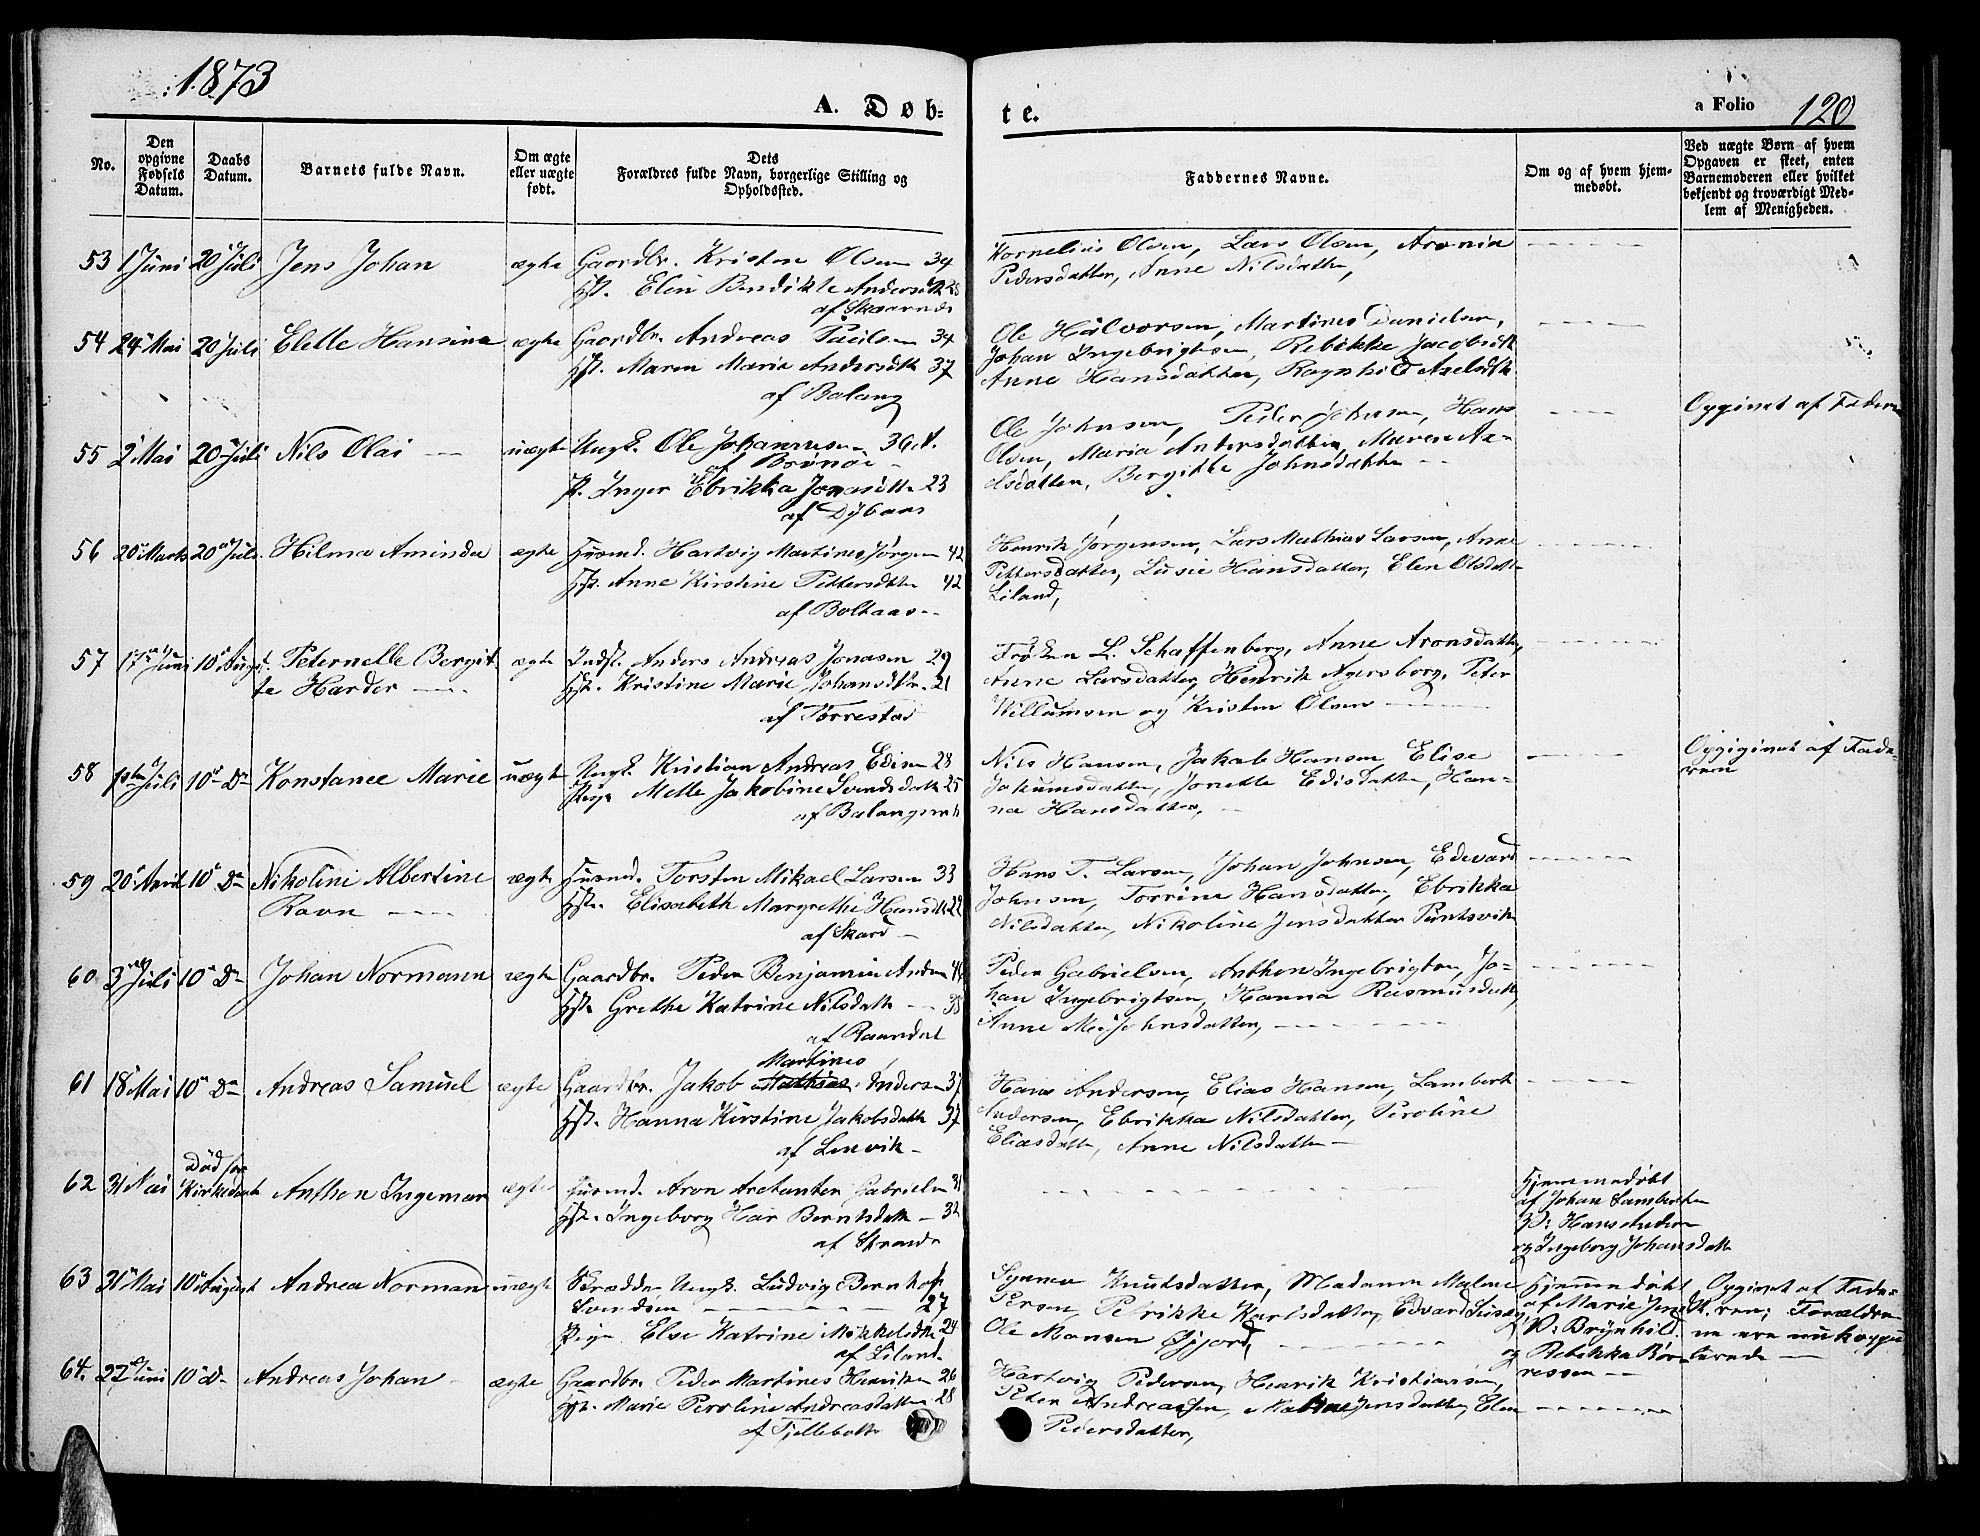 1873
A. Døb-
te.
a Folio 120
No.
Den opgivne Fødsels Datum.
Daabs Datum.
Barnets fulde Navn.
Om ægte eller uægte født.
Dets Forældres fulde Navn, borgerlige Stilling og Opholdssted.
Faddernes Navne.
Om og af hvem hjem-medøbt.
Ved uægte Børn af hvem Opgaven er skeet, enten Barnemoderen eller hvilket bekjendt og troværdigt Med-lem af Menigheden.
53 1 Juni 20 Juli Jens Johan ægte Gaardbr. Kristen Olsen 34
Hst. Elen Bendikte Andersdtr 28
Kornelius Olsen, Lars Olsen, Aronia
Pedersdatter, Anne Nilsdatter,
54 24 Mai 20 Juli Elette Hansine ægte Gaardbr. Andreas Paulsen 34
Hst. Maren Maria Andersdtr 37
af Balang
Ole Halvorsen, Martines Danielsen,
Johan Ingebrigtsen, Rebekke Jacobsdtr
Anne Hansdatter, Ragnhild Axelsdtr
55 2 Mai 20 Juli Nils Olai uægte Ungk. Ole Johannesen 36 A.
af Brønøe
P. Inger Ebrikka Jonasdtr 23
af Dybaas
Ole Johnsen, Peder Johnsen, Hans
Olsen, Maria Andersdatter, Maren Ax-
elsdatter, Bergitte Johnsdatter
Opgivet af Faderen
56 20 Marts 20 Juli Hilma Aminda ægte Husmd. Hartvig Martines Jørgen 42
Hst. Anne Kirstine Pettersdtr 42
af Boltaas
Henrik Jørgensen, Lars Mathias Larsen, Anne
Pettersdatter, Lusie Hansdatter, Elen Olsdatt.
Liland,
57 17 Juni 10 August Peternelle Bergit-
te Harder ægte Inds. Anders Andreas Jonasen 29
Hst. Kristine Marie Johansdtr. 21
af Torrestad
Frøken L. Schaffenberg, Anne Aronsdatter,
Anne Larsdatter, Hendrik Agersborg, Peter
Willumsen og Kristen Olsen
58 1ste Juli 10 Do Konstance Marie uægte Ungk. Kristian Andreas Edisen 28
Pige Mette Jakobine Svendsdatt 25
af Balangsmrk
Nils Hansen, Jakob Hansen, Elise
Jakumsdatter, Jonette Edisdatter, Han-
na Hansdatter,
Opgivet af Fade-
ren
59 20 April 10 Do Nikoline Albertine
Ravn ægte Husmd. Torsten Mikael Larsen 33
Hst. Elisabeth Margrethe Hansdtr 22
af Skard
Hans T. Larsen, Johan Johnsen, Edevard
Johnsen, Torrine Hansdatter, Ebrikka
Nilsdatter, Nikoline Jensdatter Pruntsvik
60 3 Juli 10 Do Johan Normann ægte Gaardbr. Peder Benjamin Anders
Hst. Grethe Katrine Nilsdatt 38
af Raundal
Peder Gabrielsen, Anthon Ingebrigtsen, Jo-
han Ingebrigtsen, Hanna Rasmusdatt,
Anne Mei Johnsdatter,
61 18 Mai 10 Do Andreas Samuel ægte Gaardbr. Jakob Martines Andersen 37
Hst. Hanna Kirstine Jakobsdatt 37
af Lenvik
Hans Andersen, Elias Hansen, Lambert
Andersen, Ebrikka Nilsdatter, Peroline
Eliasdatt, Anne Nilsdatter
62 31 Mai Død før
Kirkedaab Anthon Ingemar ægte Husmd. Aron Gabrielsn 31
Hst. Ingeborg Berntsdatt 32
af Strand
Hjemmedøbt
af Johan Lambertsen
V: Hans Andersen
og Ingeborg Johansdatt
63 31 Mai 10 August Andrea Norman uægte Skrædder Ungk. Ludvig Bernhoft
Svendsen 27
Pige Else Katrine Mikkelsdtr 24
af Liland
Synneva Knutsdatter, Madamm Malene
Persen, Petrikke Karlsdatter, Edvard
Ole Monsen Øijord,
Hjemmedøbt
af Marie
V: Brynhild
og Rebekka
Opgivet af Fade-
ren; Forældre-
ne ere nu kopu-
lerede
64 27 Juni 10 Do Andreas Johan ægte Gaardbr. Peder Martines Henriksen 26
Hst. Marie Peroline Andreasdatter 28
af Fjellebotn
Hartvig Pedersen, Henrik Kristiansen,
Peter Andreassen, Jensdatter, Elen
Pedersdatter,